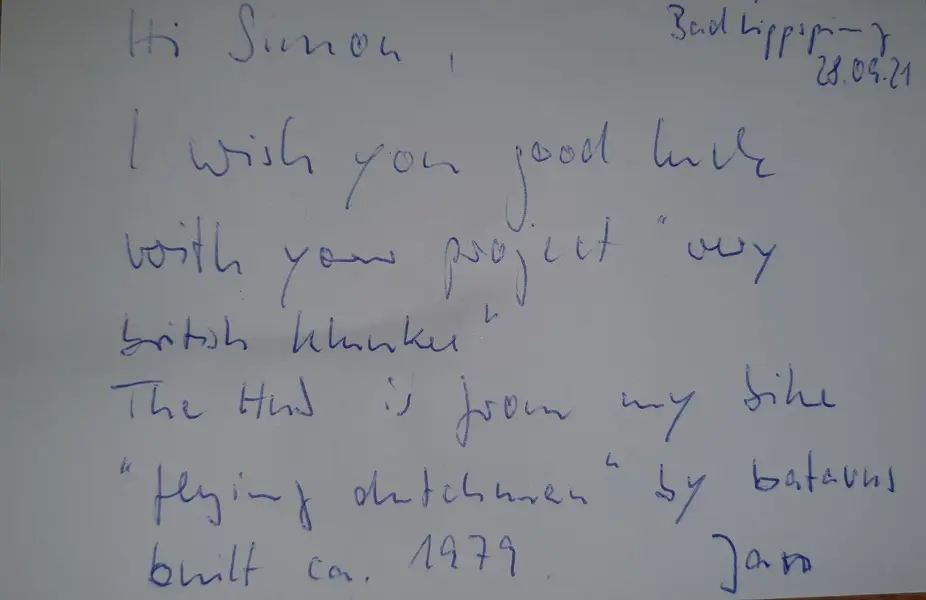 Bad Lippspringe
28.09.21
Hi Simon,
I wish you good luck
with your project "very
british klunker"
The Hub is from my bike
"flying dutchman" by batavus
built ca. 1979